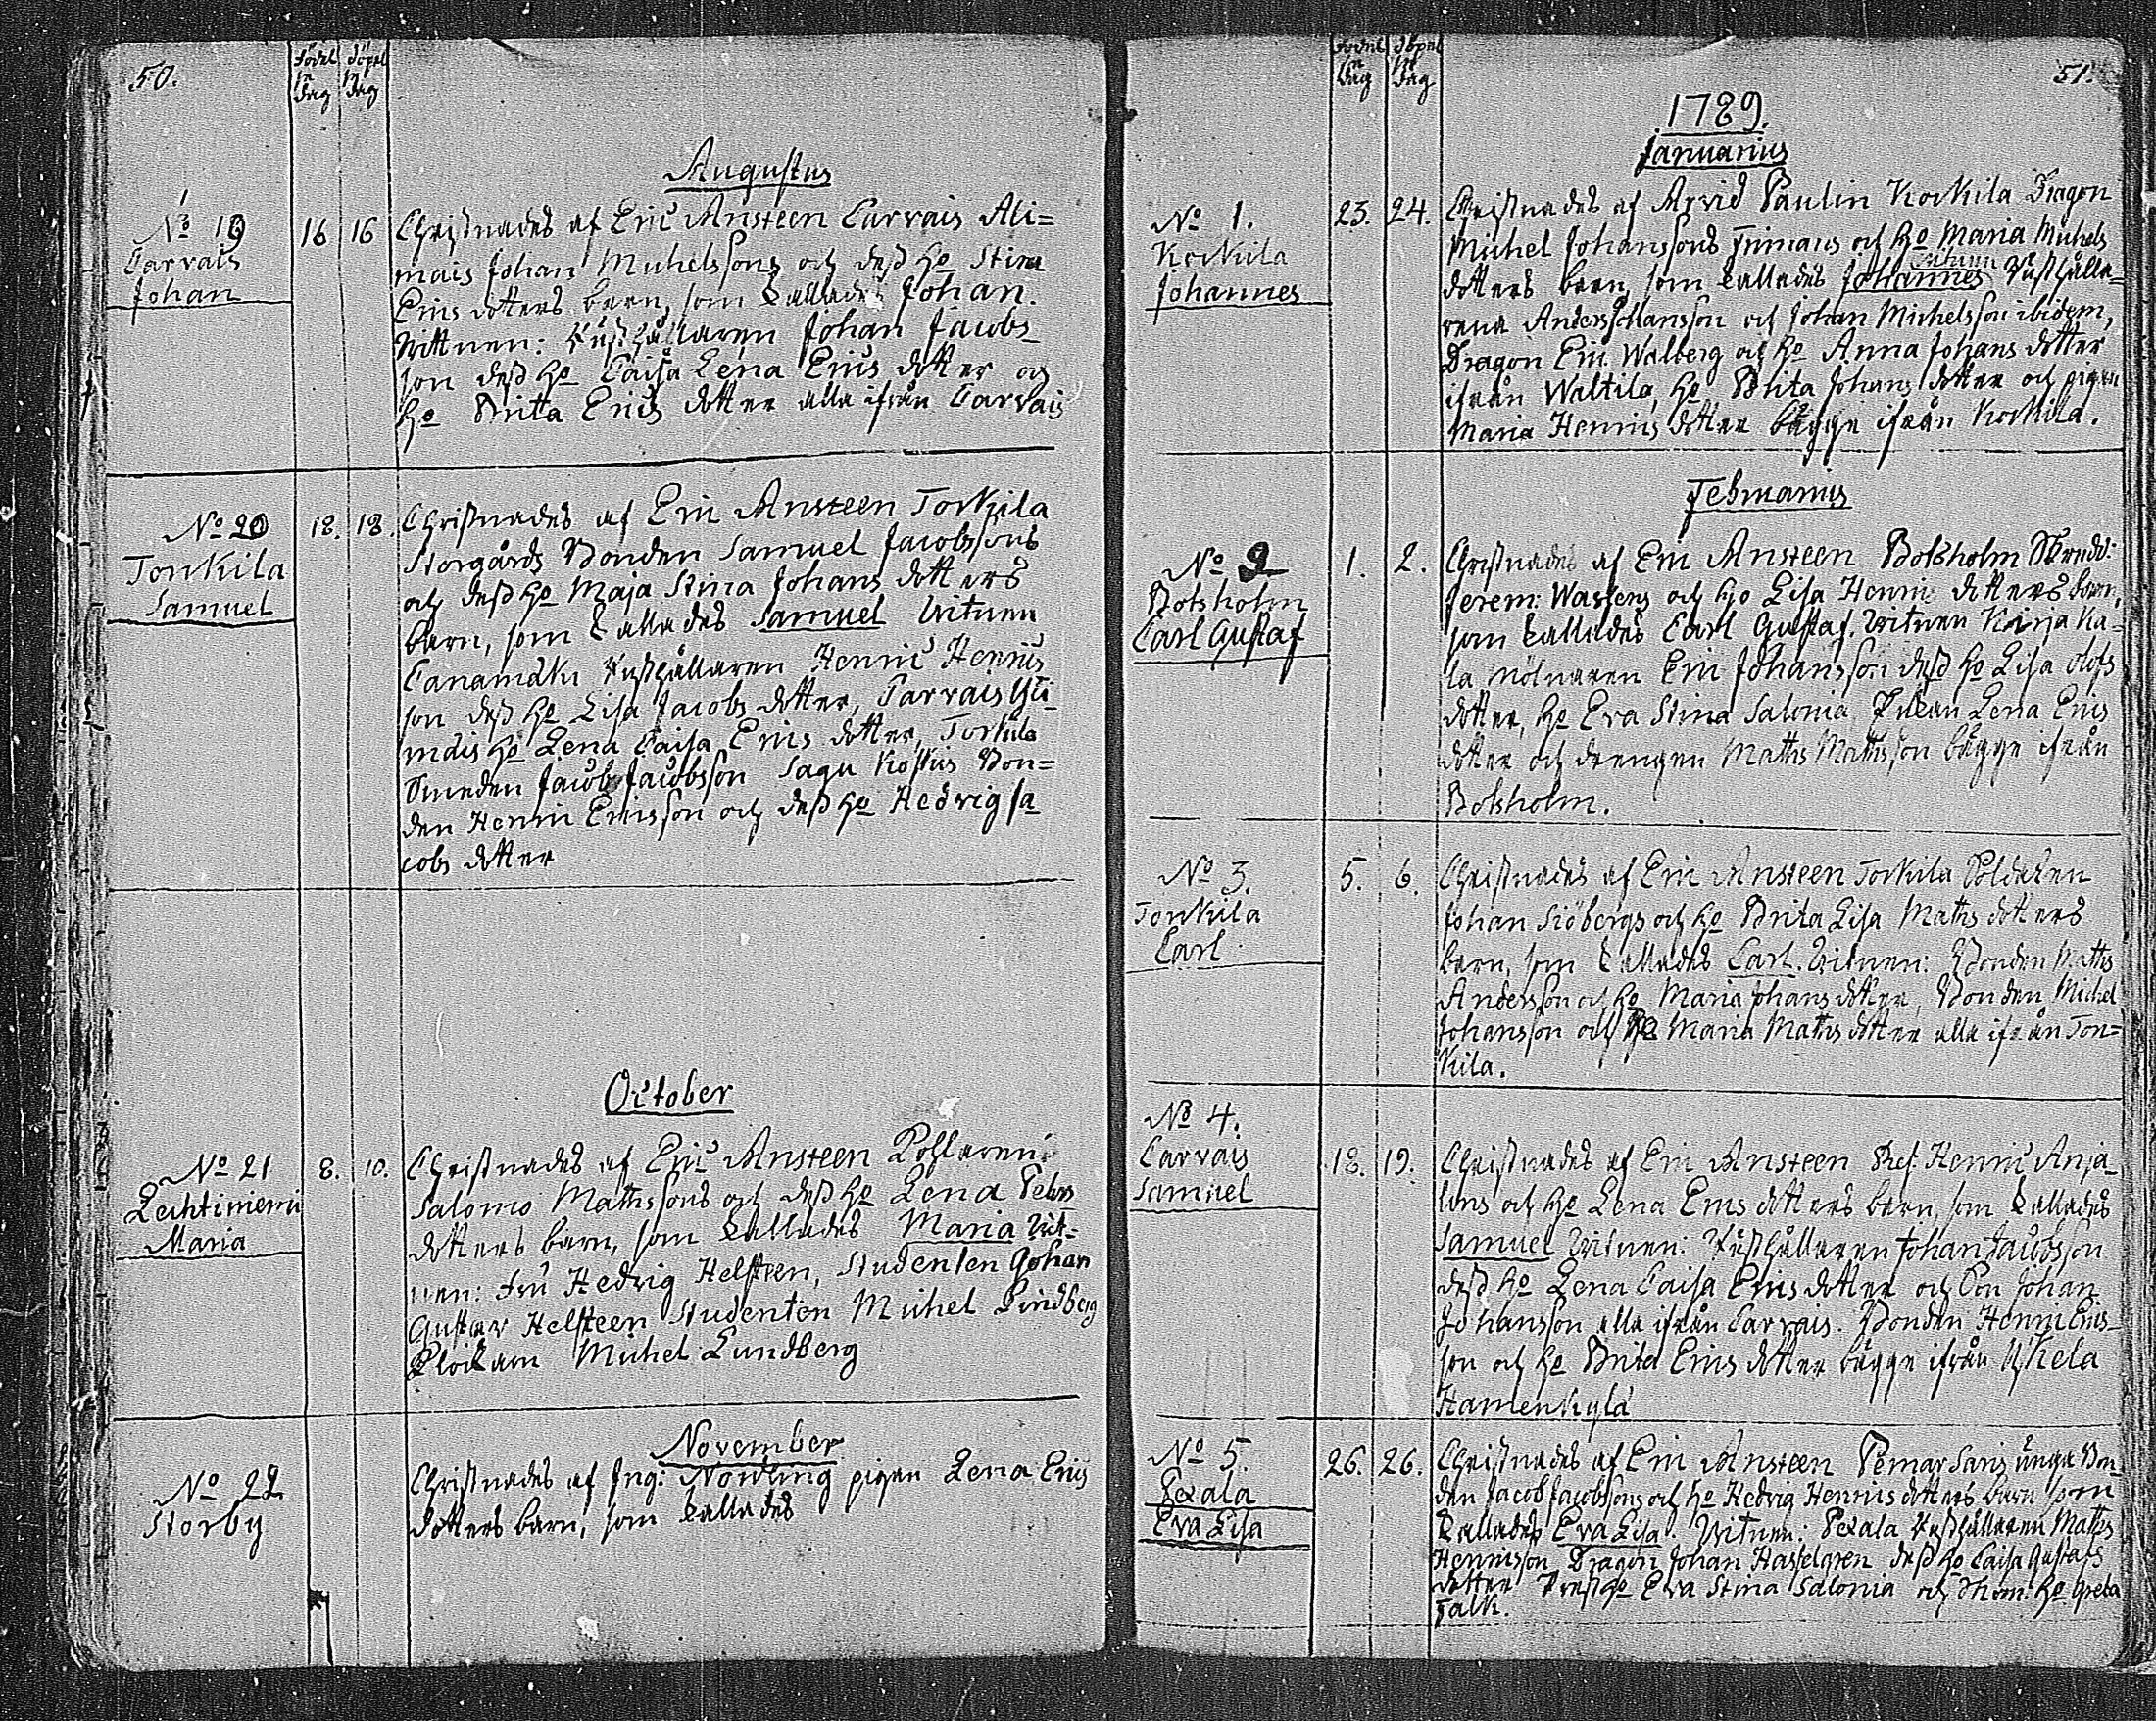 50.
Födel: dag
Döpel: dag
Augustus
No 19
Carvais
Johan
16 16
Christnades af Eric Ansteen Carvais Ali=
mais Johan Michelssons och dess Ho Stina
Erics dotters barn, som kallades Johan.
Wittnen: Rusthållaren Johan Jacobs
son dess Ho Caisa Lena Erics dotter och
Ho Britta Erics dotter alla ifrån Carvais
No 20
Torkila
Samuel
18. 18.
Christnades af Eric Ansteen Torkila
Storgårds Bonden Samuel Jacobssons
och dess Ho Maja Stina Johans dotters
barn, som kallades Samuel Witnen
Rusthållaren Henric Henrics
son dess Ho Lisa Jacobs dotter, Carvais
Ho Lena Caisa Erics dotter, Torkila
Smeden Jacob Jacobsson Sagu Bon=
den Henric Ericsson och dess Ho Hedvig Ja
cobs dotter
October
No 21
Lechtiniemi
Maria
8. 10.
Christnades af Eric Ansteen
Salomo Mathssons och dess Ho Lena Pehrs
dotters barn, som kallades Maria Vit-
nen: Fru Hedvig Helsteen, Studenten Johan
Gustav Helsteen Studenten Michel Lindberg
Klockaren Michel Lundberg
November
No 22
Storby
Christnades af Ing: Nordling pigan Lena Erics
dotters barn, som kallades
51.
Födel: dag
Döpel: dag
1789.
Januarius
No 1.
Korkila
Johannes
23. 24.
Christnades af Arvid Paulin Korkila Dragon
Michel Johanssons Frimans och Ho Maria Michels
dotters barn, som kallades Johannes Witnen Rusthålla=
rena Anders Johansson och Johan Michelsson ibidem,
Dragon Eric Walberg och Ho Anna Johans dotter
ifrån Waltila, Ho Brita Johans dotter och pigan
Maria Henrics dotter bägge ifrån Korkila.
Februarius
No 2
Bolsholm
Carl Gustaf
1. 2.
Christnades af Eric Ansteen Bolsholm Skredd:
Jerem: Wassens och Ho Lisa Henrics dotters barn,
som kallades Carl Gustaf. Witnen Kirja Ka=
la Mölnaren Eric Johansson dess Ho Lisa Olofs
dotter, Ho Eva Stina Salonia Lena Erics
dotter och drengen Maths Mathsson bägge ifrån
Bolsholm.
No 3.
Torkila
Carl
5. 6.
Christnades af Eric Ansteen Torkila Soldaten
Johan Siöbergs och Ho Brita Lisa Maths dotters
barn, som kallades Carl. Witnen: Bonden Maths
Andersson och Ho Maria Johans dotter, Bonden Michel
Johansson och Ho Maria Maths dotter alla ifrån Tor=
kila.
No 4.
Carvais
Samuel
18. 19.
Christnades af Eric Ansteen Ref: Henric Anja
lins och Ho Lena Erics dotters barn, som kallades
Samuel Witnen: Rusthållaren Johan Jacobsson
dess Ho Lena Caisa Erics dotter och Johan
Johansson alla ifrån Carvais. Bonden Henric Erics
son och Ho Brita Erics dotter bägge ifrån Uskela
Hamenkylä
No 5.
Pexala
Eva Lisa
26. 26.
Christnades af Eric Ansteen Pemar Saris unga Bon
den Jacob Jacobssons och Ho Hedvig Henrics dotters barn som
kallades Eva Lisa. Witnen: Pexala Rusthållaren Maths
Henricsson Dragon Johan Hasselgren dess Ho Caisa Gustafs
dotter Ho Eva Stina Salonia och Ho Greta
Falk.